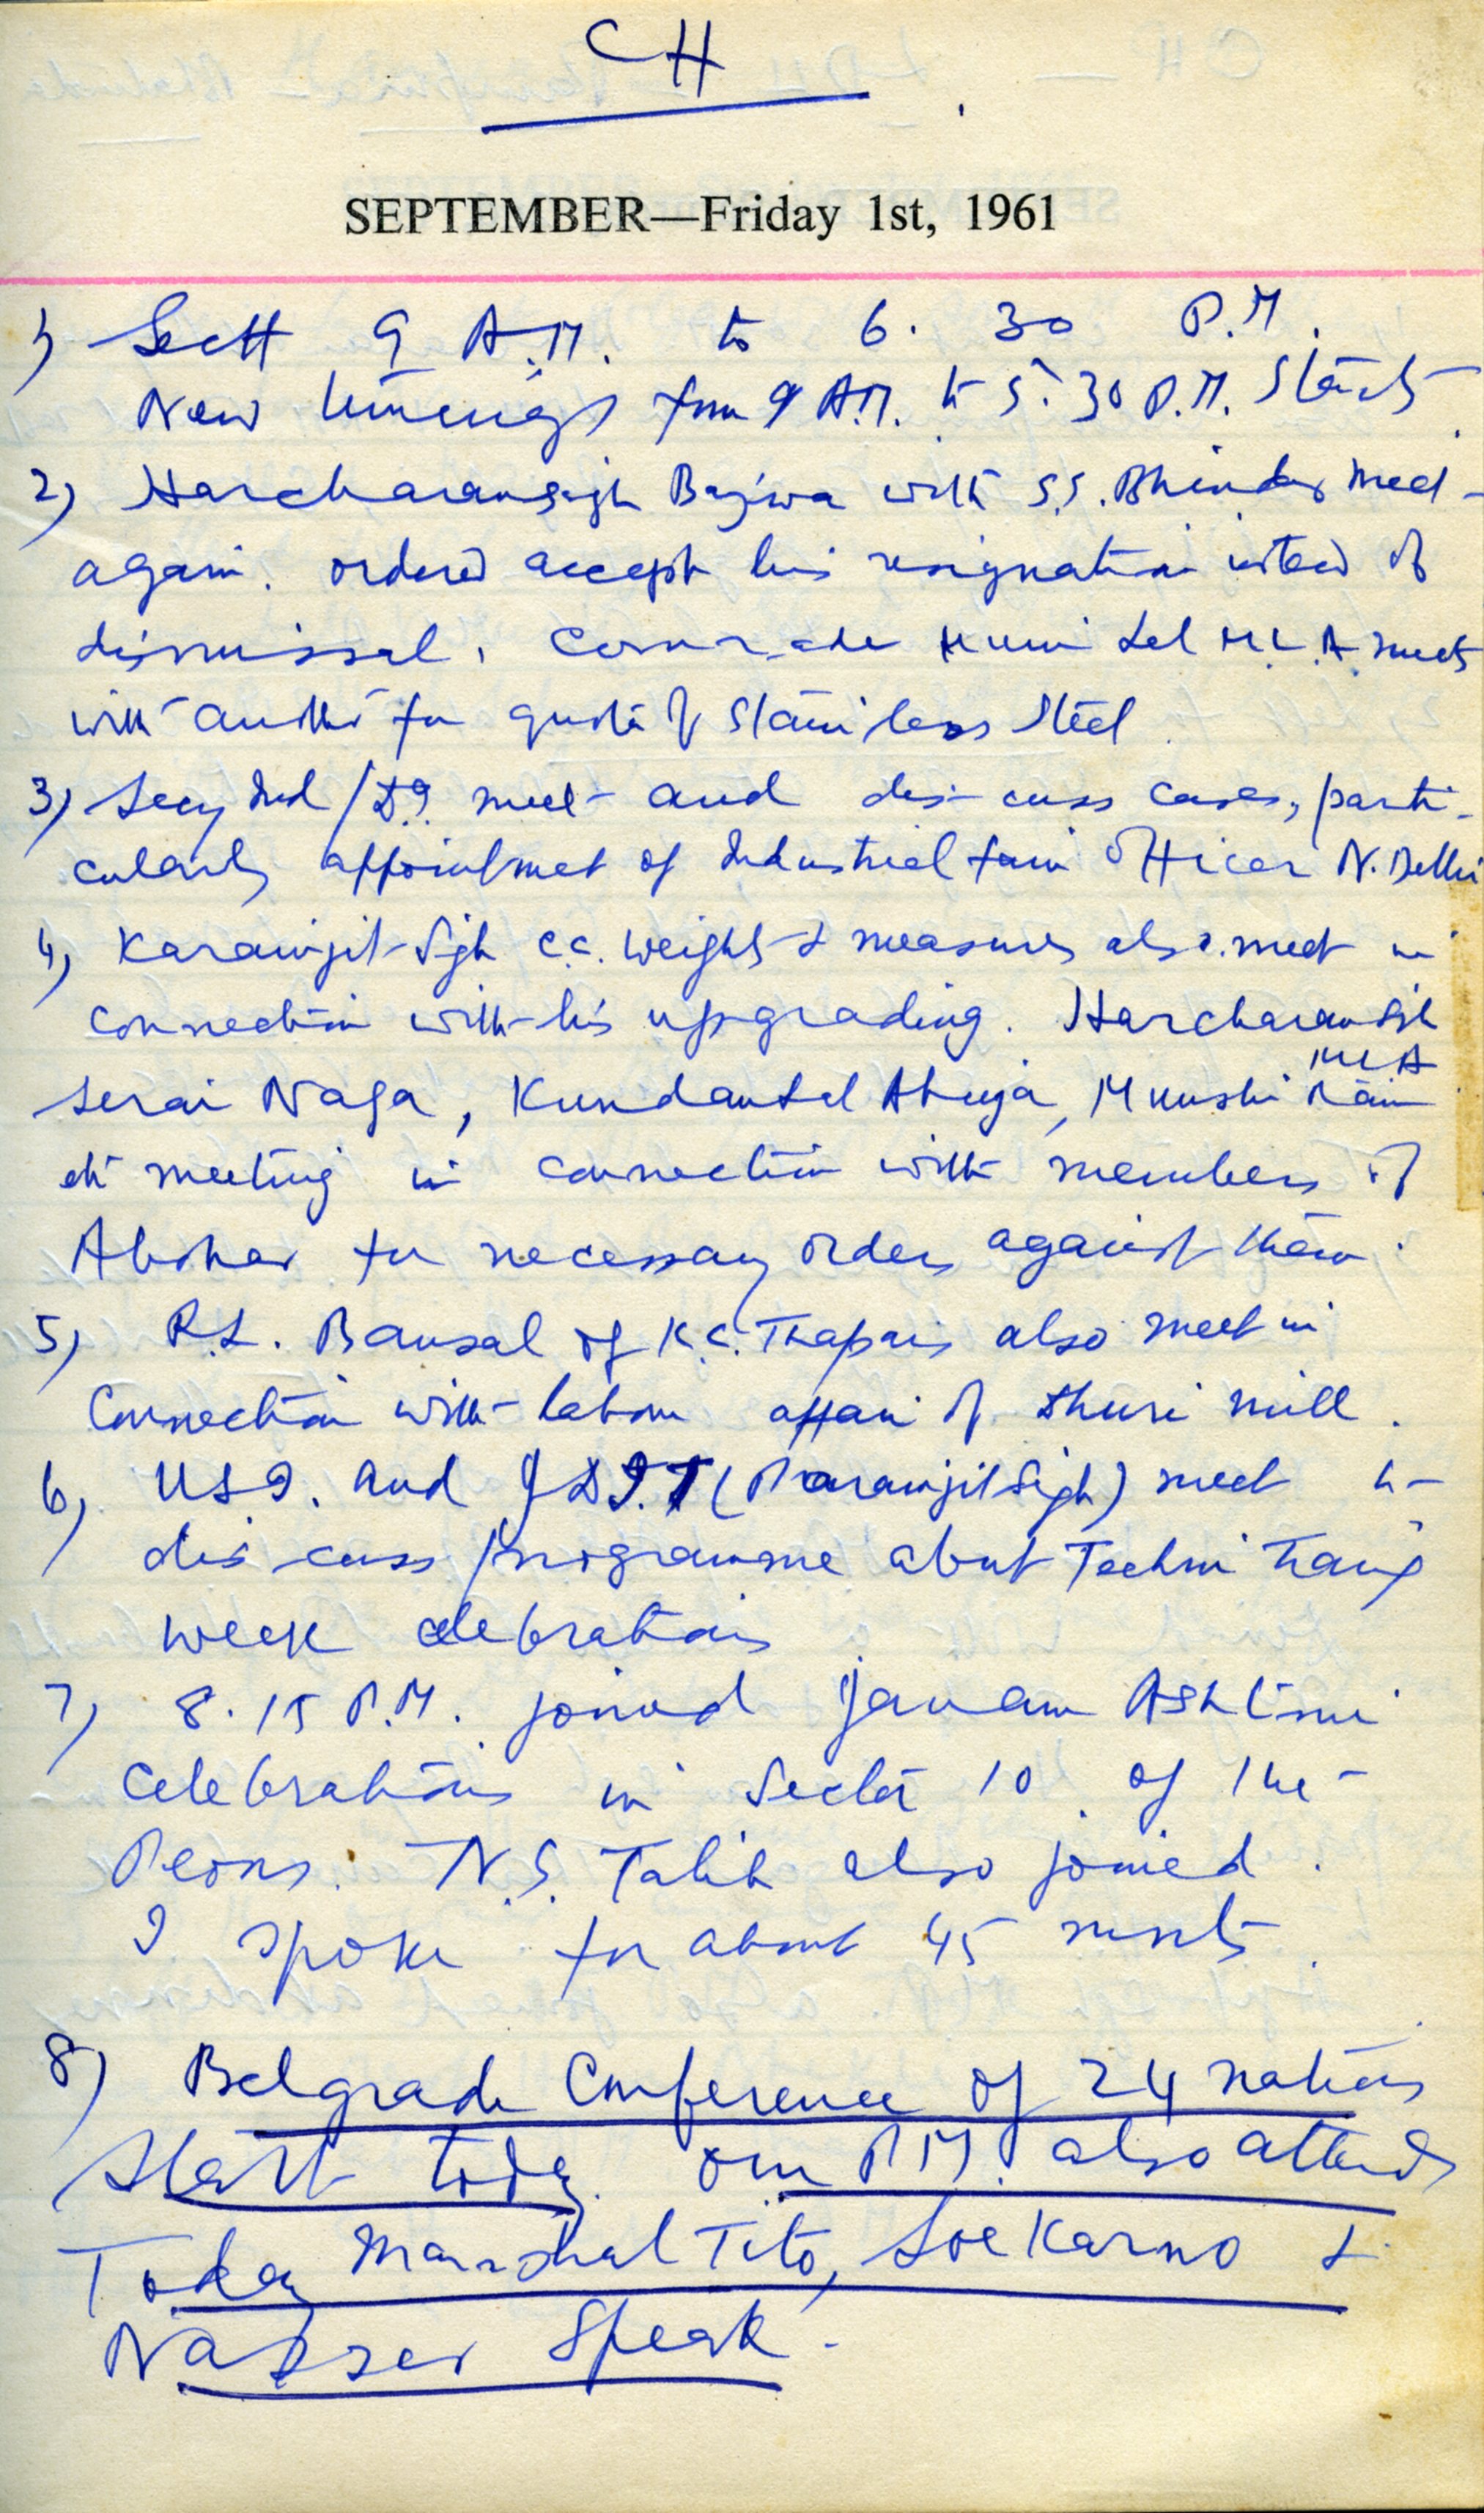 CH
SEPTEMBER—Friday 1st, 1961
1) Sectt 9 A.M. to 6.30 P.M.
New timings from 9 A.M. to 5.30 P.M. Starts.
2) Harcharansigh Bajwa with S.S. Bhinder meet
again. ordered accept his resignation instead of
dismissal. Comrade Muni Lal M.L.A. meets
with another for quota of Stainless Steel.
3) Secy Ind/D.I. meet and discuss cases, parti-
cularly appointmet of Industrial Officer N. Delhi
4) Karamjit Sgh C.C. Weights & measures also meet in
connection with his upgrading. Harcharan Sgh
Serai Naga, Kundan Lal Ahuja, Munshi Ram MLA
etc meeting in connection with members of
Abohar for necessary orders against them.
5) R.L. Bansal of K.C. Thapars also meet in
Connection with labour affair of Dhuri mill.
6) USI. and JDI.T (Paramjit Sigh) meet to
discuss programme about Techni Traing
week celebrations
7) 8.15 P.M. joined Janam Ashtmi
Celebrations in Sector 10 of the
Peons. N.S. Talib also joined.
I spoke for about 45 minuts.
8) Belgrade Conference of 24 nations
Start today. Our P.M. also attends
Today Marshal Tito, Soekarno &
Nasser Speak.